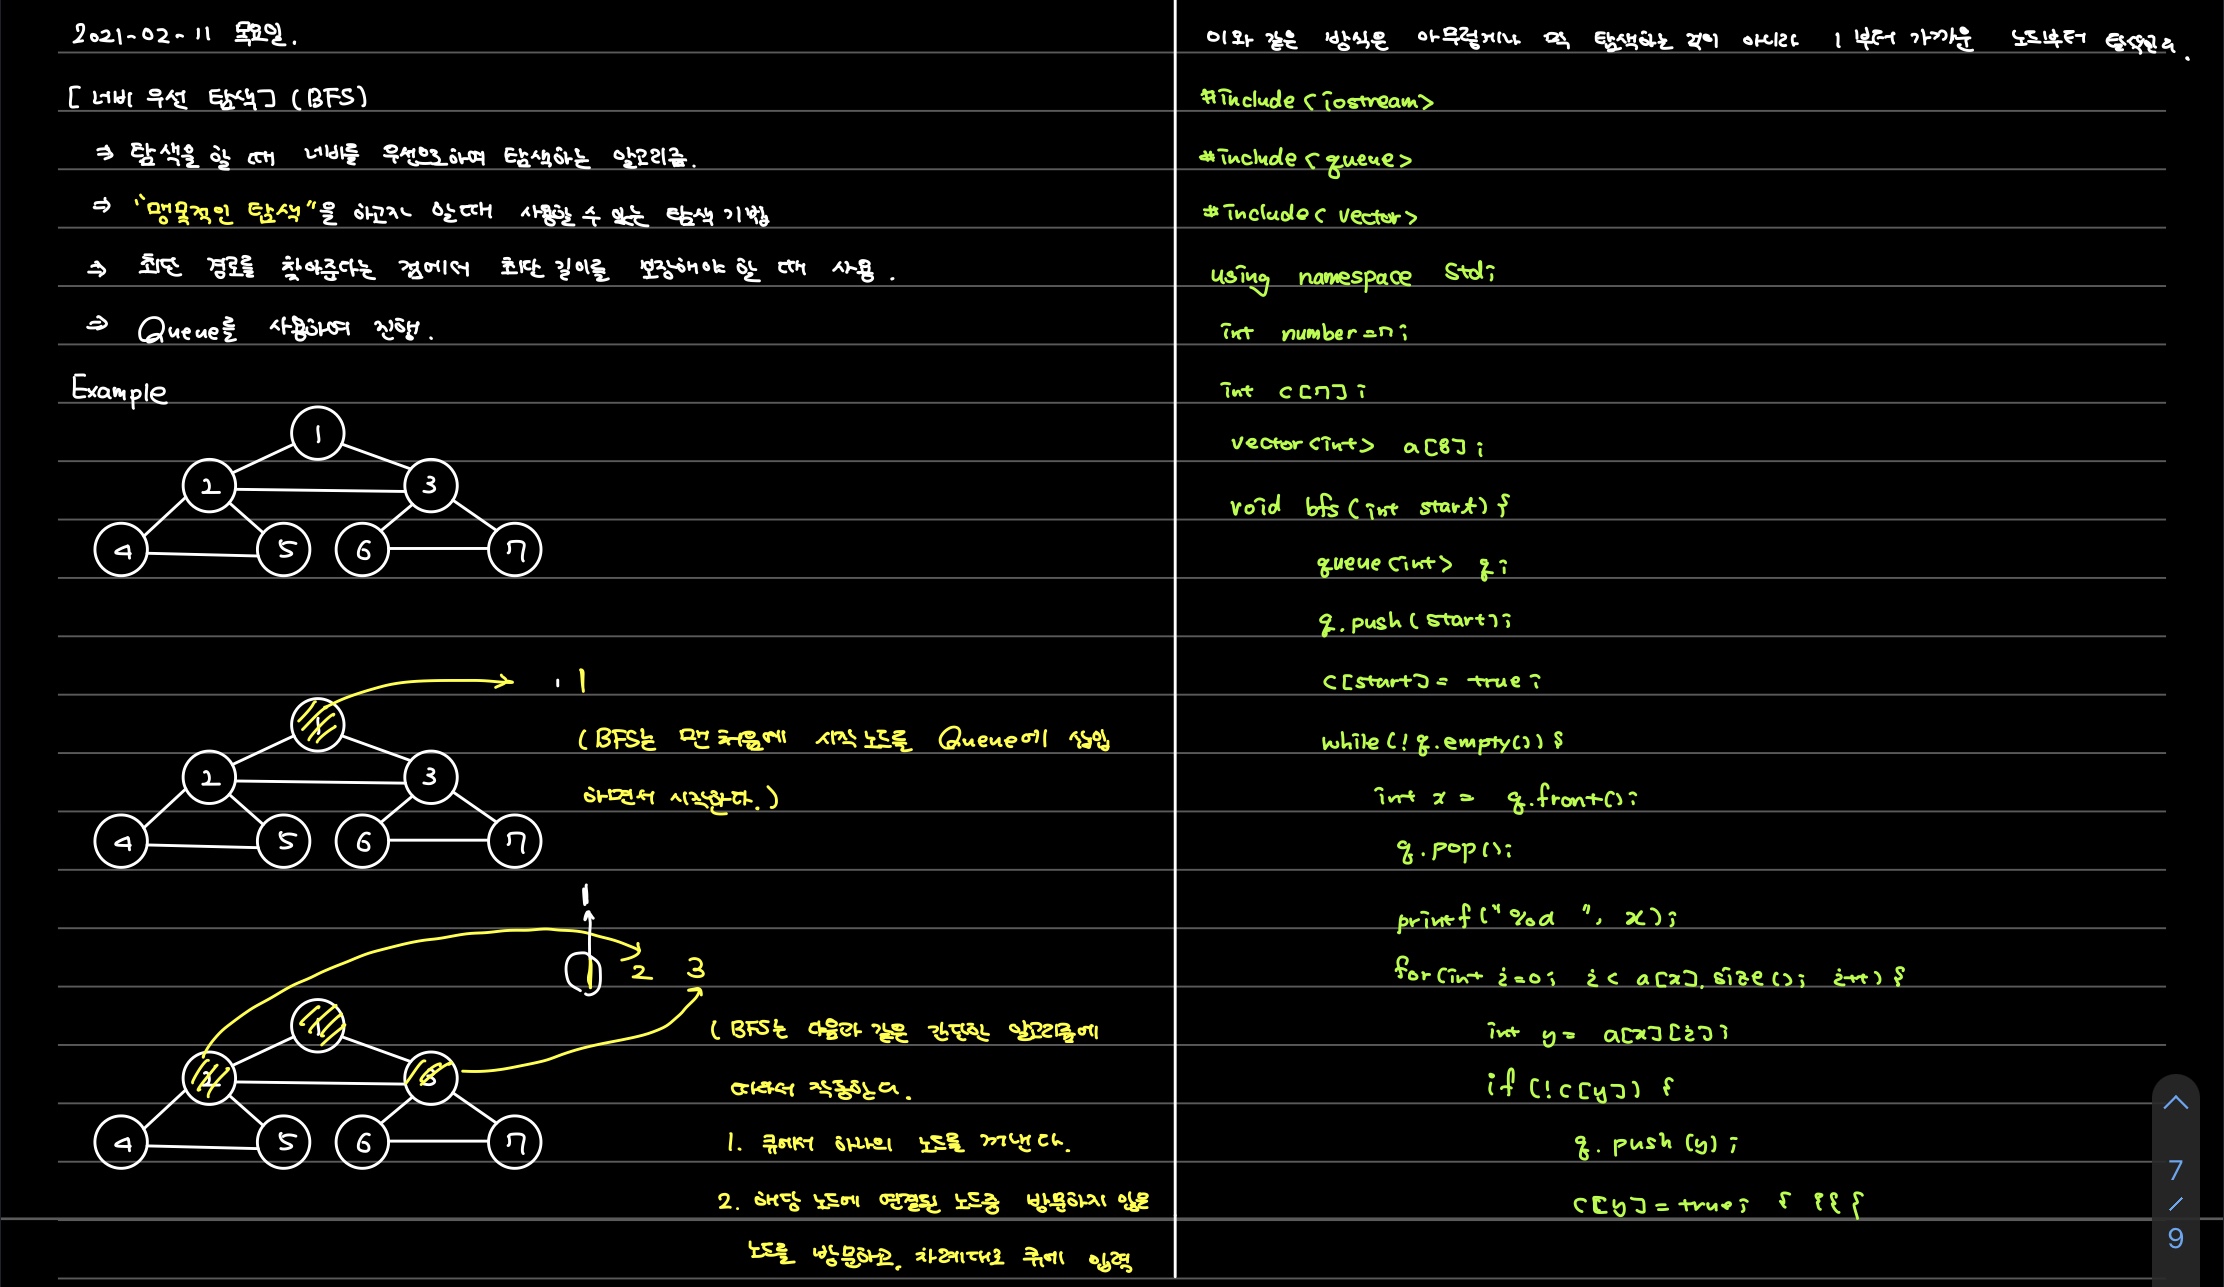 2021-02-11 목요일.
[너비 우선 탐색] (BFS)
⇒ 탐색을 할 때 너비를 우선으로하여 탐색하는 알고리즘.
⇒ "맹목적인 탐색"을 하고자 할때 사용할 수 있는 탐색 기법
⇒ 최단 경로를 찾아준다는 점에서 최단 길이를 보장해야 할 때 사용.
⇒ Queue를 사용하여 진행.
Example
1
2 3
4 5 6 7
1
1
(BFS는 맨 처음에 시작 노드를 Queue에 삽입
2 3
하면서 시작한다.)
4 5 6 7
1
1 2 3
1
(BFS는 다음과 같은 간단한 알고리즘에
2 3
따라서 작동한다.
4 5 6 7
1. 큐에서 하나의 노드를 꺼낸다.
2. 해당 노드에 연결된 노드중 방문하지 않은
노드를 방문하고, 차례대로 큐에 입력
이와 같은 방식은 아무렇게나 막 탐색하는 것이 아니라 1부터 가까운 노드부터 탐색한다.
#include <iostream>
#include <queue>
#include < vector>
using namespace std;
int number=7;
int c[7];
vector<int> a[8];
void bfs(int start){
queue<int> q;
q.push(start);
c[start]= true;
while(!q.empty()){
int x = q.front();
q.pop();
printf("%d ", x);
for(int i=0; i< a[x].size(); i++){
int y= a[x][i];
if (!c[y]) {
q. push (y);
c[y]=true; } }}}
7
/
9